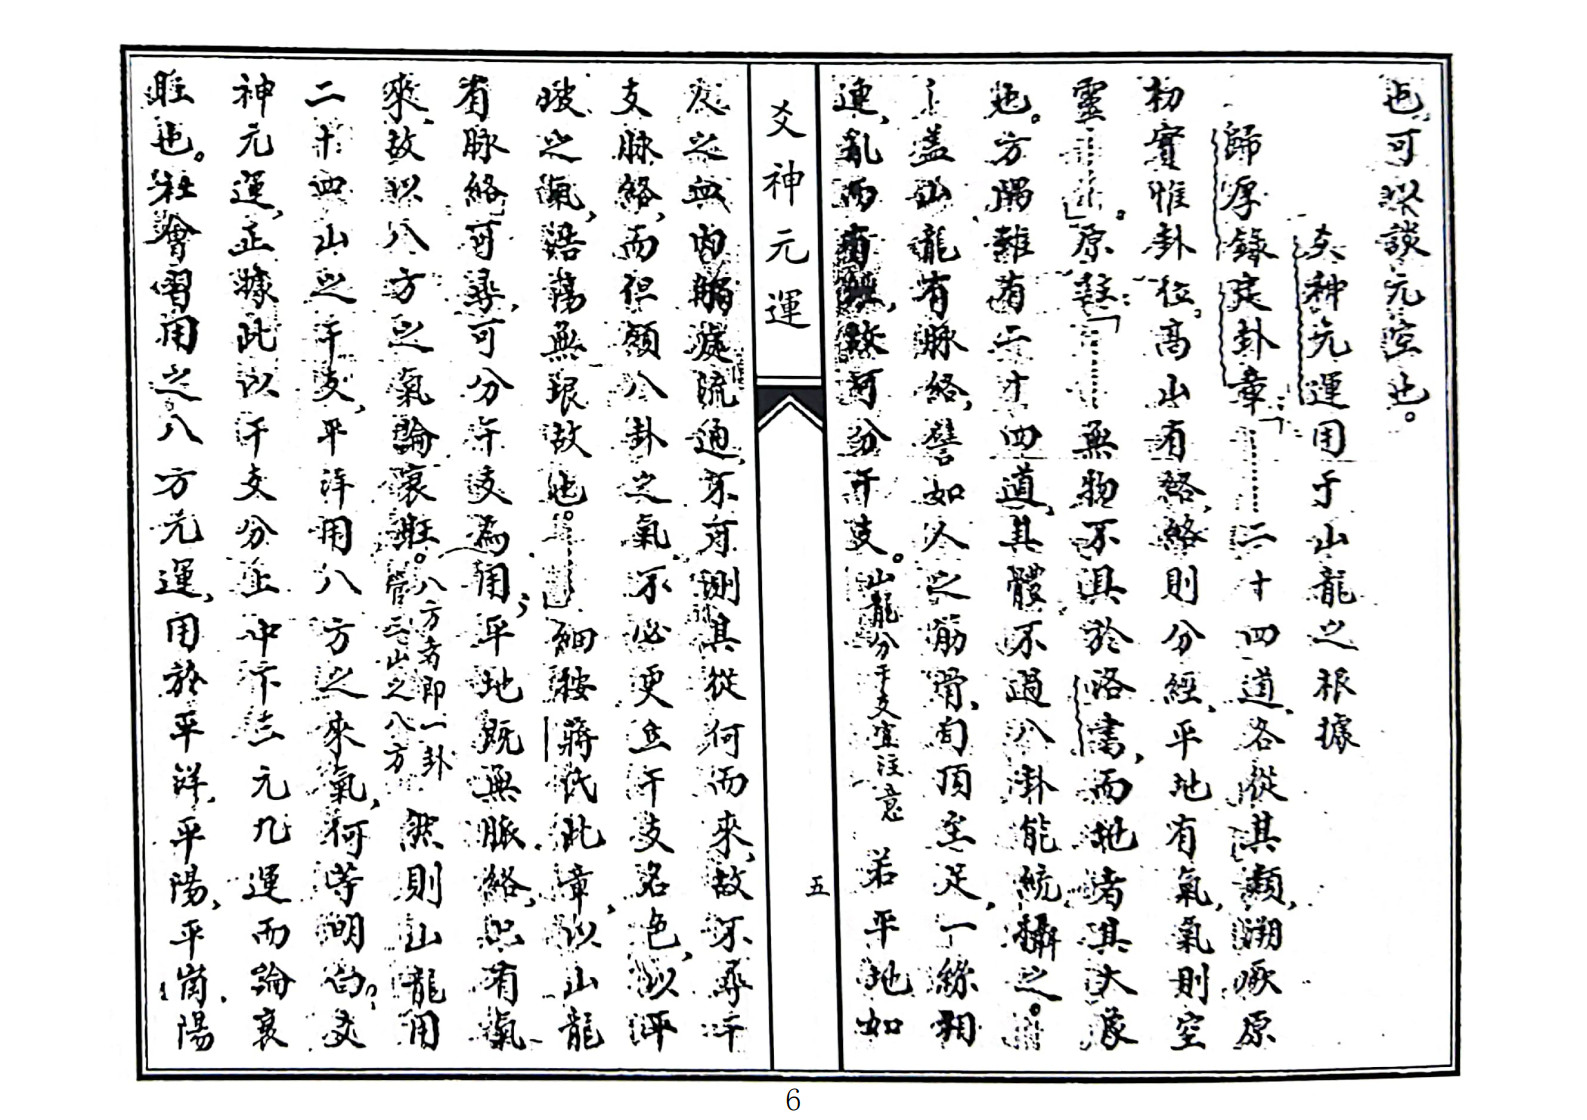 也,可以談元空也。
爻神元運用于山龍之根據
歸厚錄定卦章「……二十四道,各從其類,溯厥原
初,實惟卦位。高山有絡,絡則分經,平地有氣,氣則空
靈……」。原註:「……無物不俱於洛書,而地者其大篆
也。方隅雖有二十四道,其體不過八卦能統攝之。
蓋山龍有脉絡,譬如人之筋骨,自頂至足,一絲相
連,亂而有經,故可分干支。山龍分干支宜注意 若平地如
人之血肉,膈膜流通,不可測其從何而來,故不尋干
支脉絡,而但領八卦之氣,不必更立干支名色,以平
坡之氣,浩蕩無垠故也。……」細按蔣氏此章,以山龍
有脉絡可尋,可分干支為用;平地既無脈絡,只有氣
來,故以八方之氣論衰旺。八方者即一卦
管三山之八方 然則山龍用
二十四山之干支,平洋用八方之來氣,何等明白?爻
神元運,正據此以干支分上中下三元九運而論衰
旺也。社會習用之八方元運,用於平洋,平陽,平崗陽
爻神元運
五
6